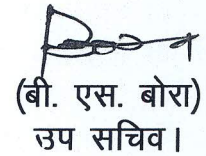 (बी. एस. बोरा)
उप सचिव।